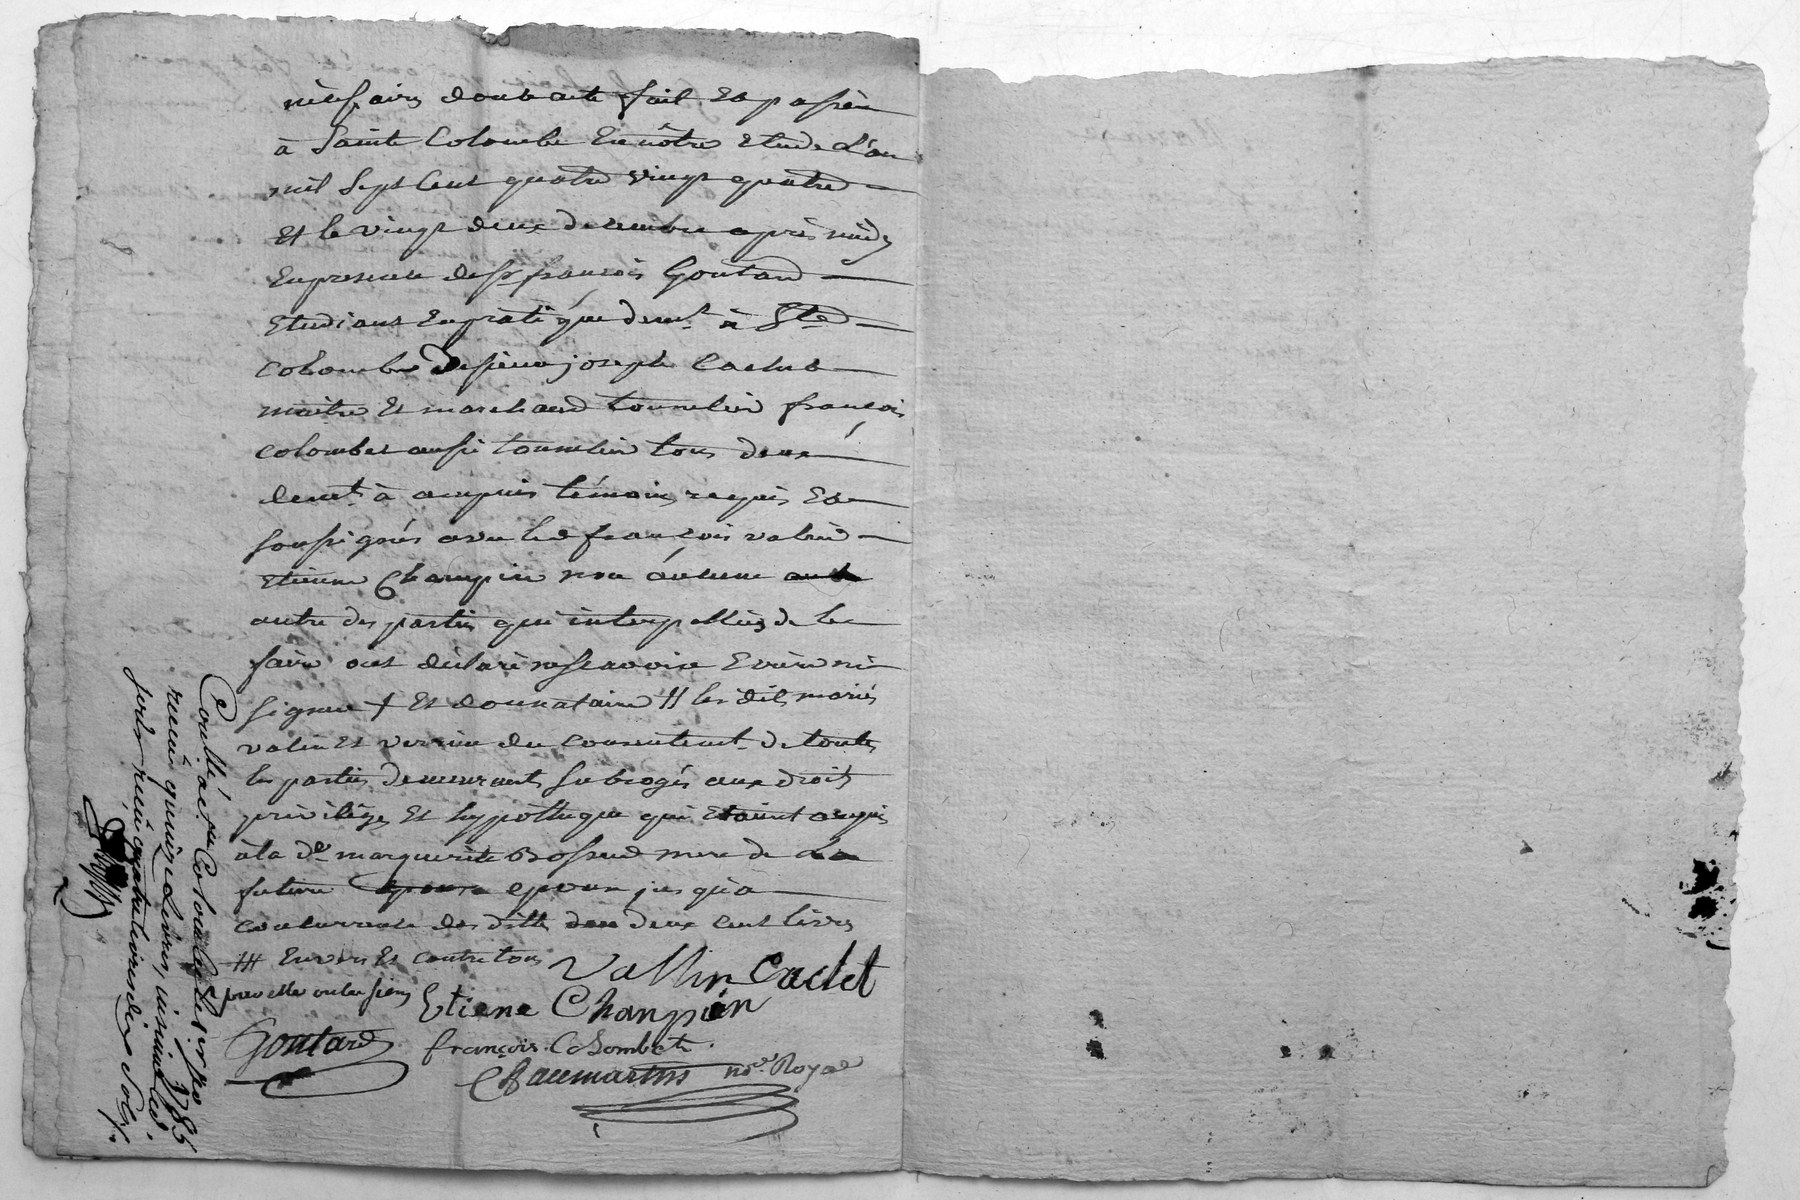 nécessaires dont acte fait Et passé
à Sainte Colombe En nôtre Etude L'an
mil Sept Cent quatre vingt quatre
Et le vingt deux decembre après midy
En presence de sr françois Goutard
Etudiant En pratique demt. à Ste
Colombe De sieur joseph
maitre Et marchand tonnelier françois
colombet aussi tonnelier tous deux
demt. à ampuis témoins requis Et
soussignés avec led françois valin
Etienne Champin non aucune
autre des parties qui interpellées de le
faire ont déclaré ne sçavoire Ecrire ni
signer + Et donnataire // les dits mariés
valin Et du consentemt. de toutes
les parties demeurants subrogés aux droits
privilèges Et hypotheque qui Etaient acquis
à la De. marguerite mere de la
future epouse jusqu'a
concurrence des dittes deux cent livres
/// Envers Et contre tous
par elle ou les siens
Vallin Cadet
Etiene Chanpin
Goutard
françois Colombet
Chaumartin nore. Royal
Conllé. a Ste Colombe le 1785
recue quinze Livres, insinué led.
jour recu quatre livres dix sols.